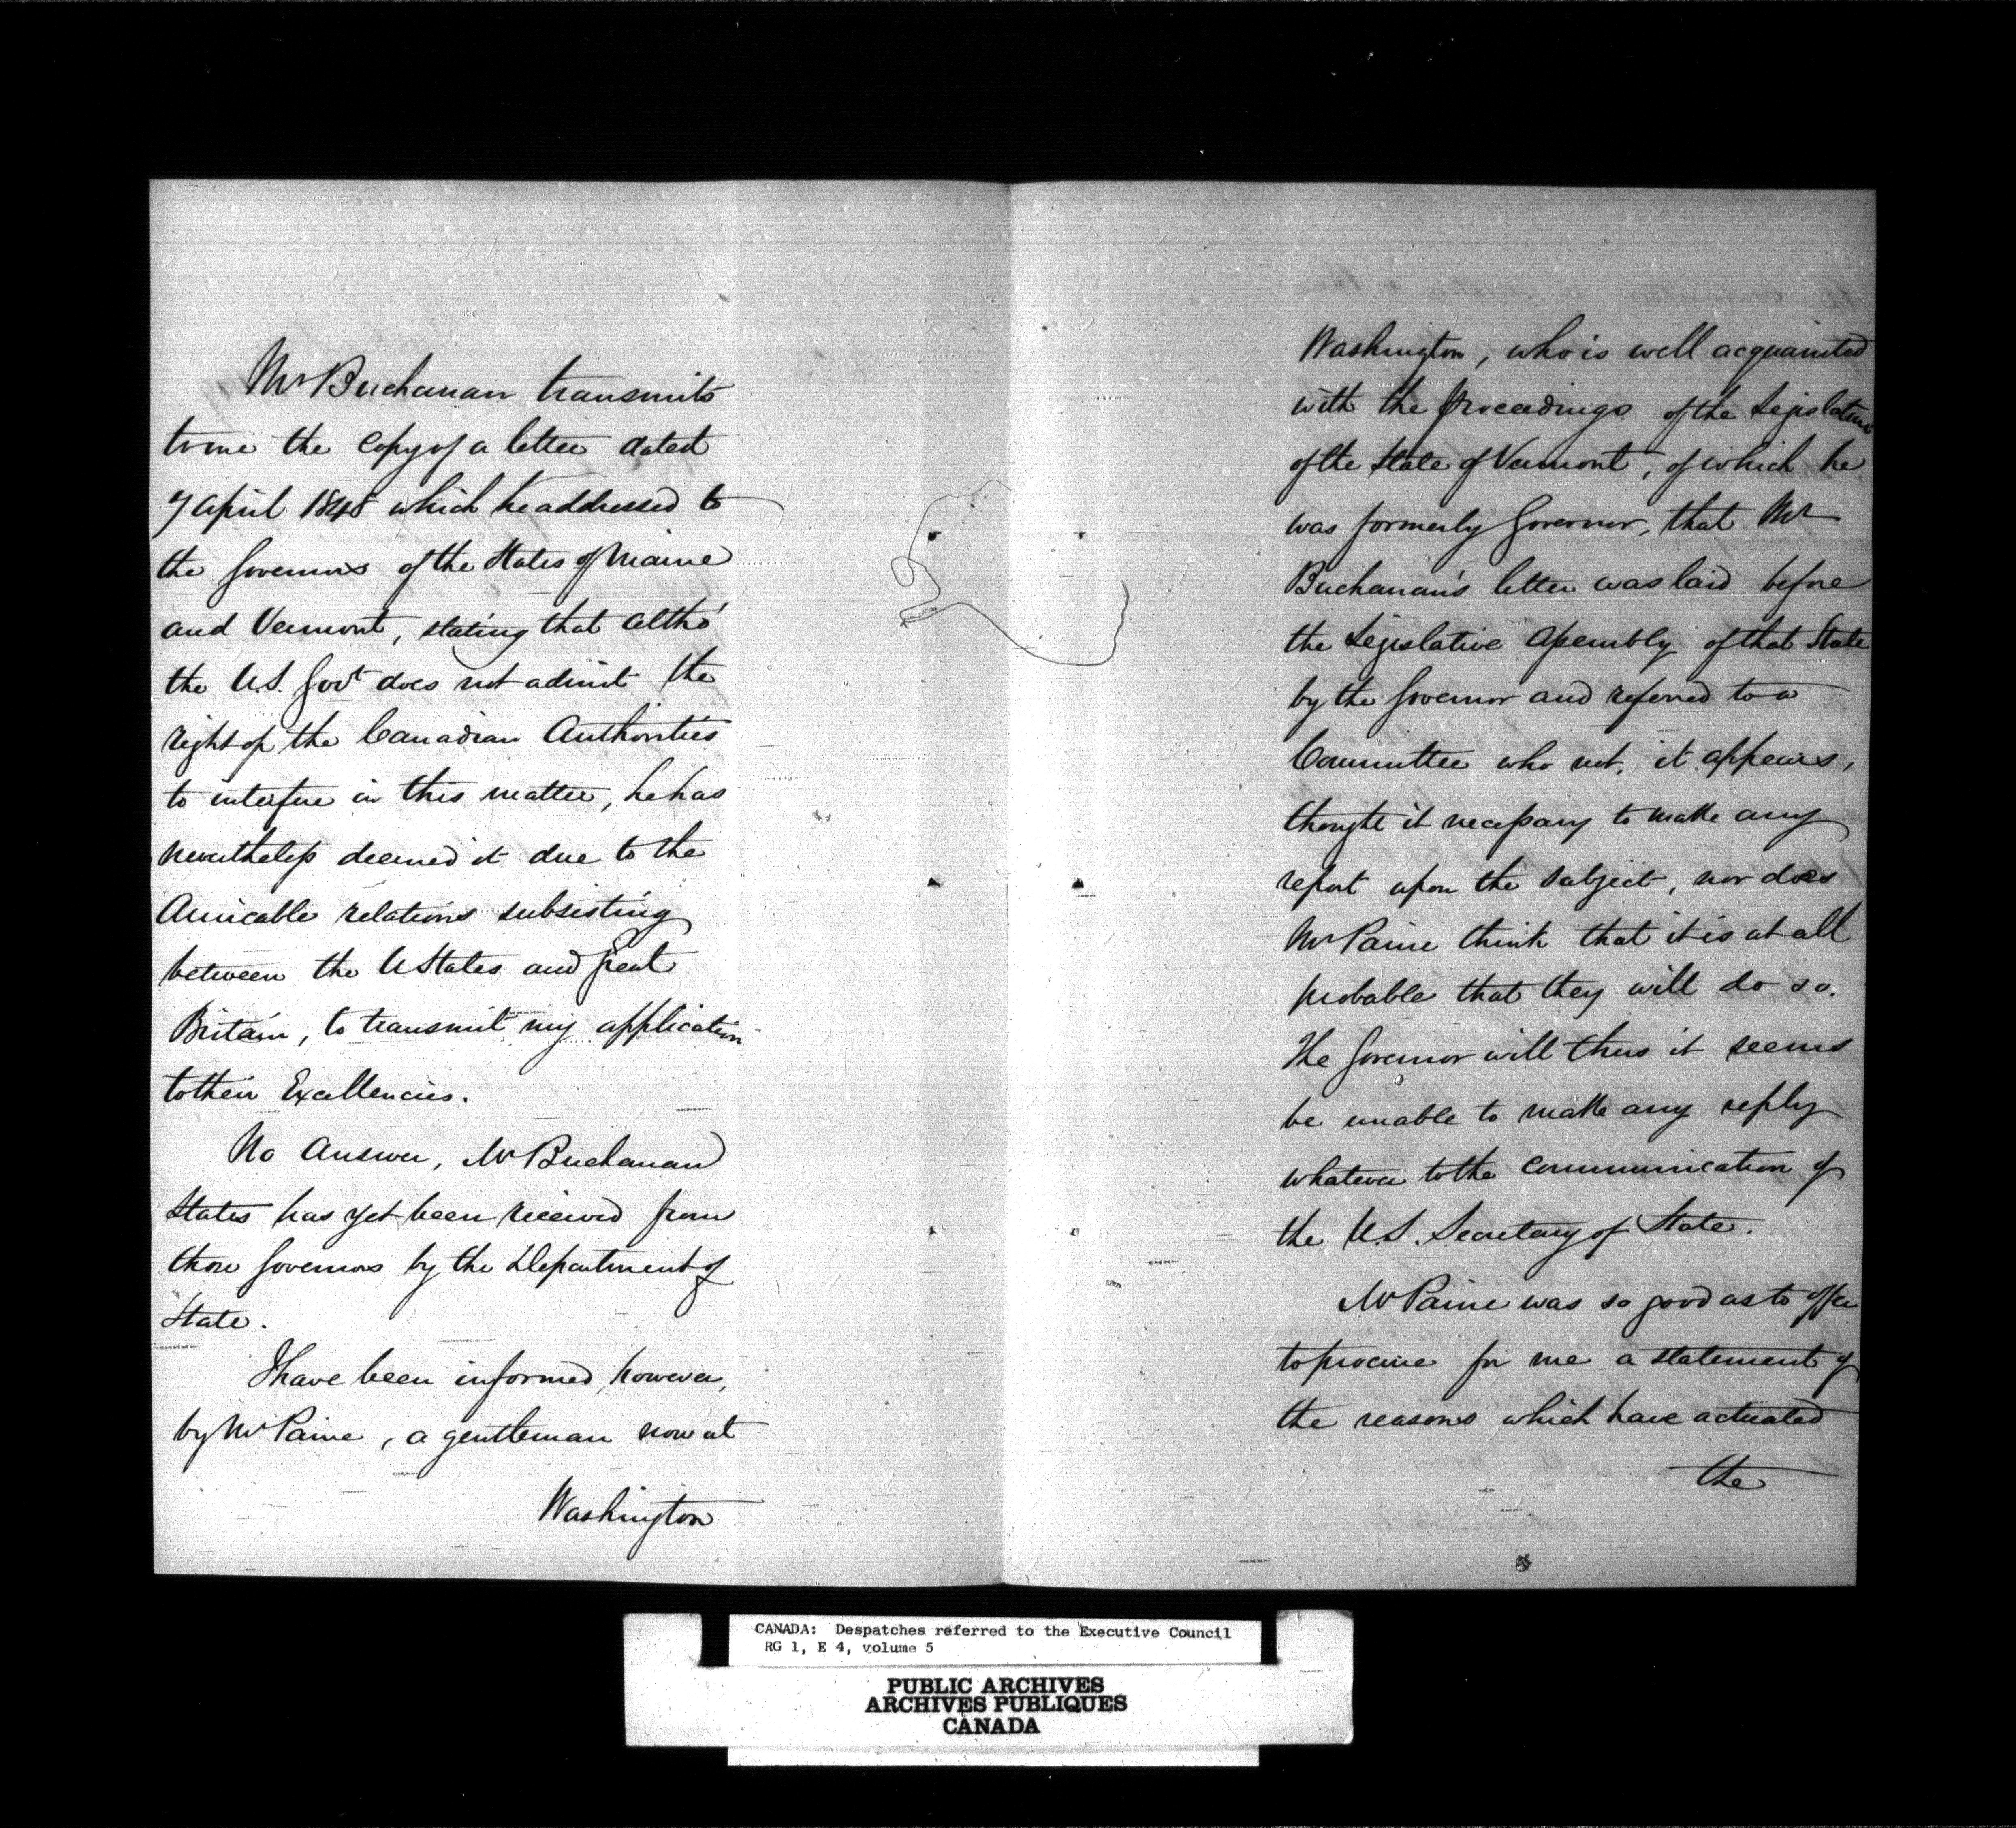 Mr Buchanan transmits
to me the Copy of a letter dated
7 April 1848 which he addressed to
the Governors of the States of Maine
and Vermont, stating that altho'
the U.S. Govt does not admit the
right of the Canadian Authorities
to interfere in this matter, he has
nevertheless deemed it due to the
Amicable relations subsisting
between the U States and Great
Britain, to transmit my application
to their Excellencies.
No Answer, Mr Buchanan
States has yet been received from
those Governors by the Department of
State.
I have been informed, however,
by Mr Paine, a gentleman now at
Washington
Washington, who is well acquainted
with the proceedings of the Legislature
of the State of Vermont, of which he
was formerly Governor, that Mr
Buchanan's letter was laid before
the Legislative Assembly of that State
by the Governor and referred to a
Committee who not, it appears,
thought it necessary to make any
report upon the subject, nor does
Mr Paine think that it is at all
probable that they will do so.
The Governor will thus it seems
be unable to make any reply
whatever to the communication of
the U.S. Secretary of State.
Mr Paine was so good as to offer
to procure for me a statement of
the reasons which have actuated
the
CANADA: Despatches referred to the Executive Council
RG 1, E 4, volume 5
PUBLIC ARCHIVES
ARCHIVES PUBLIQUES
CANADA